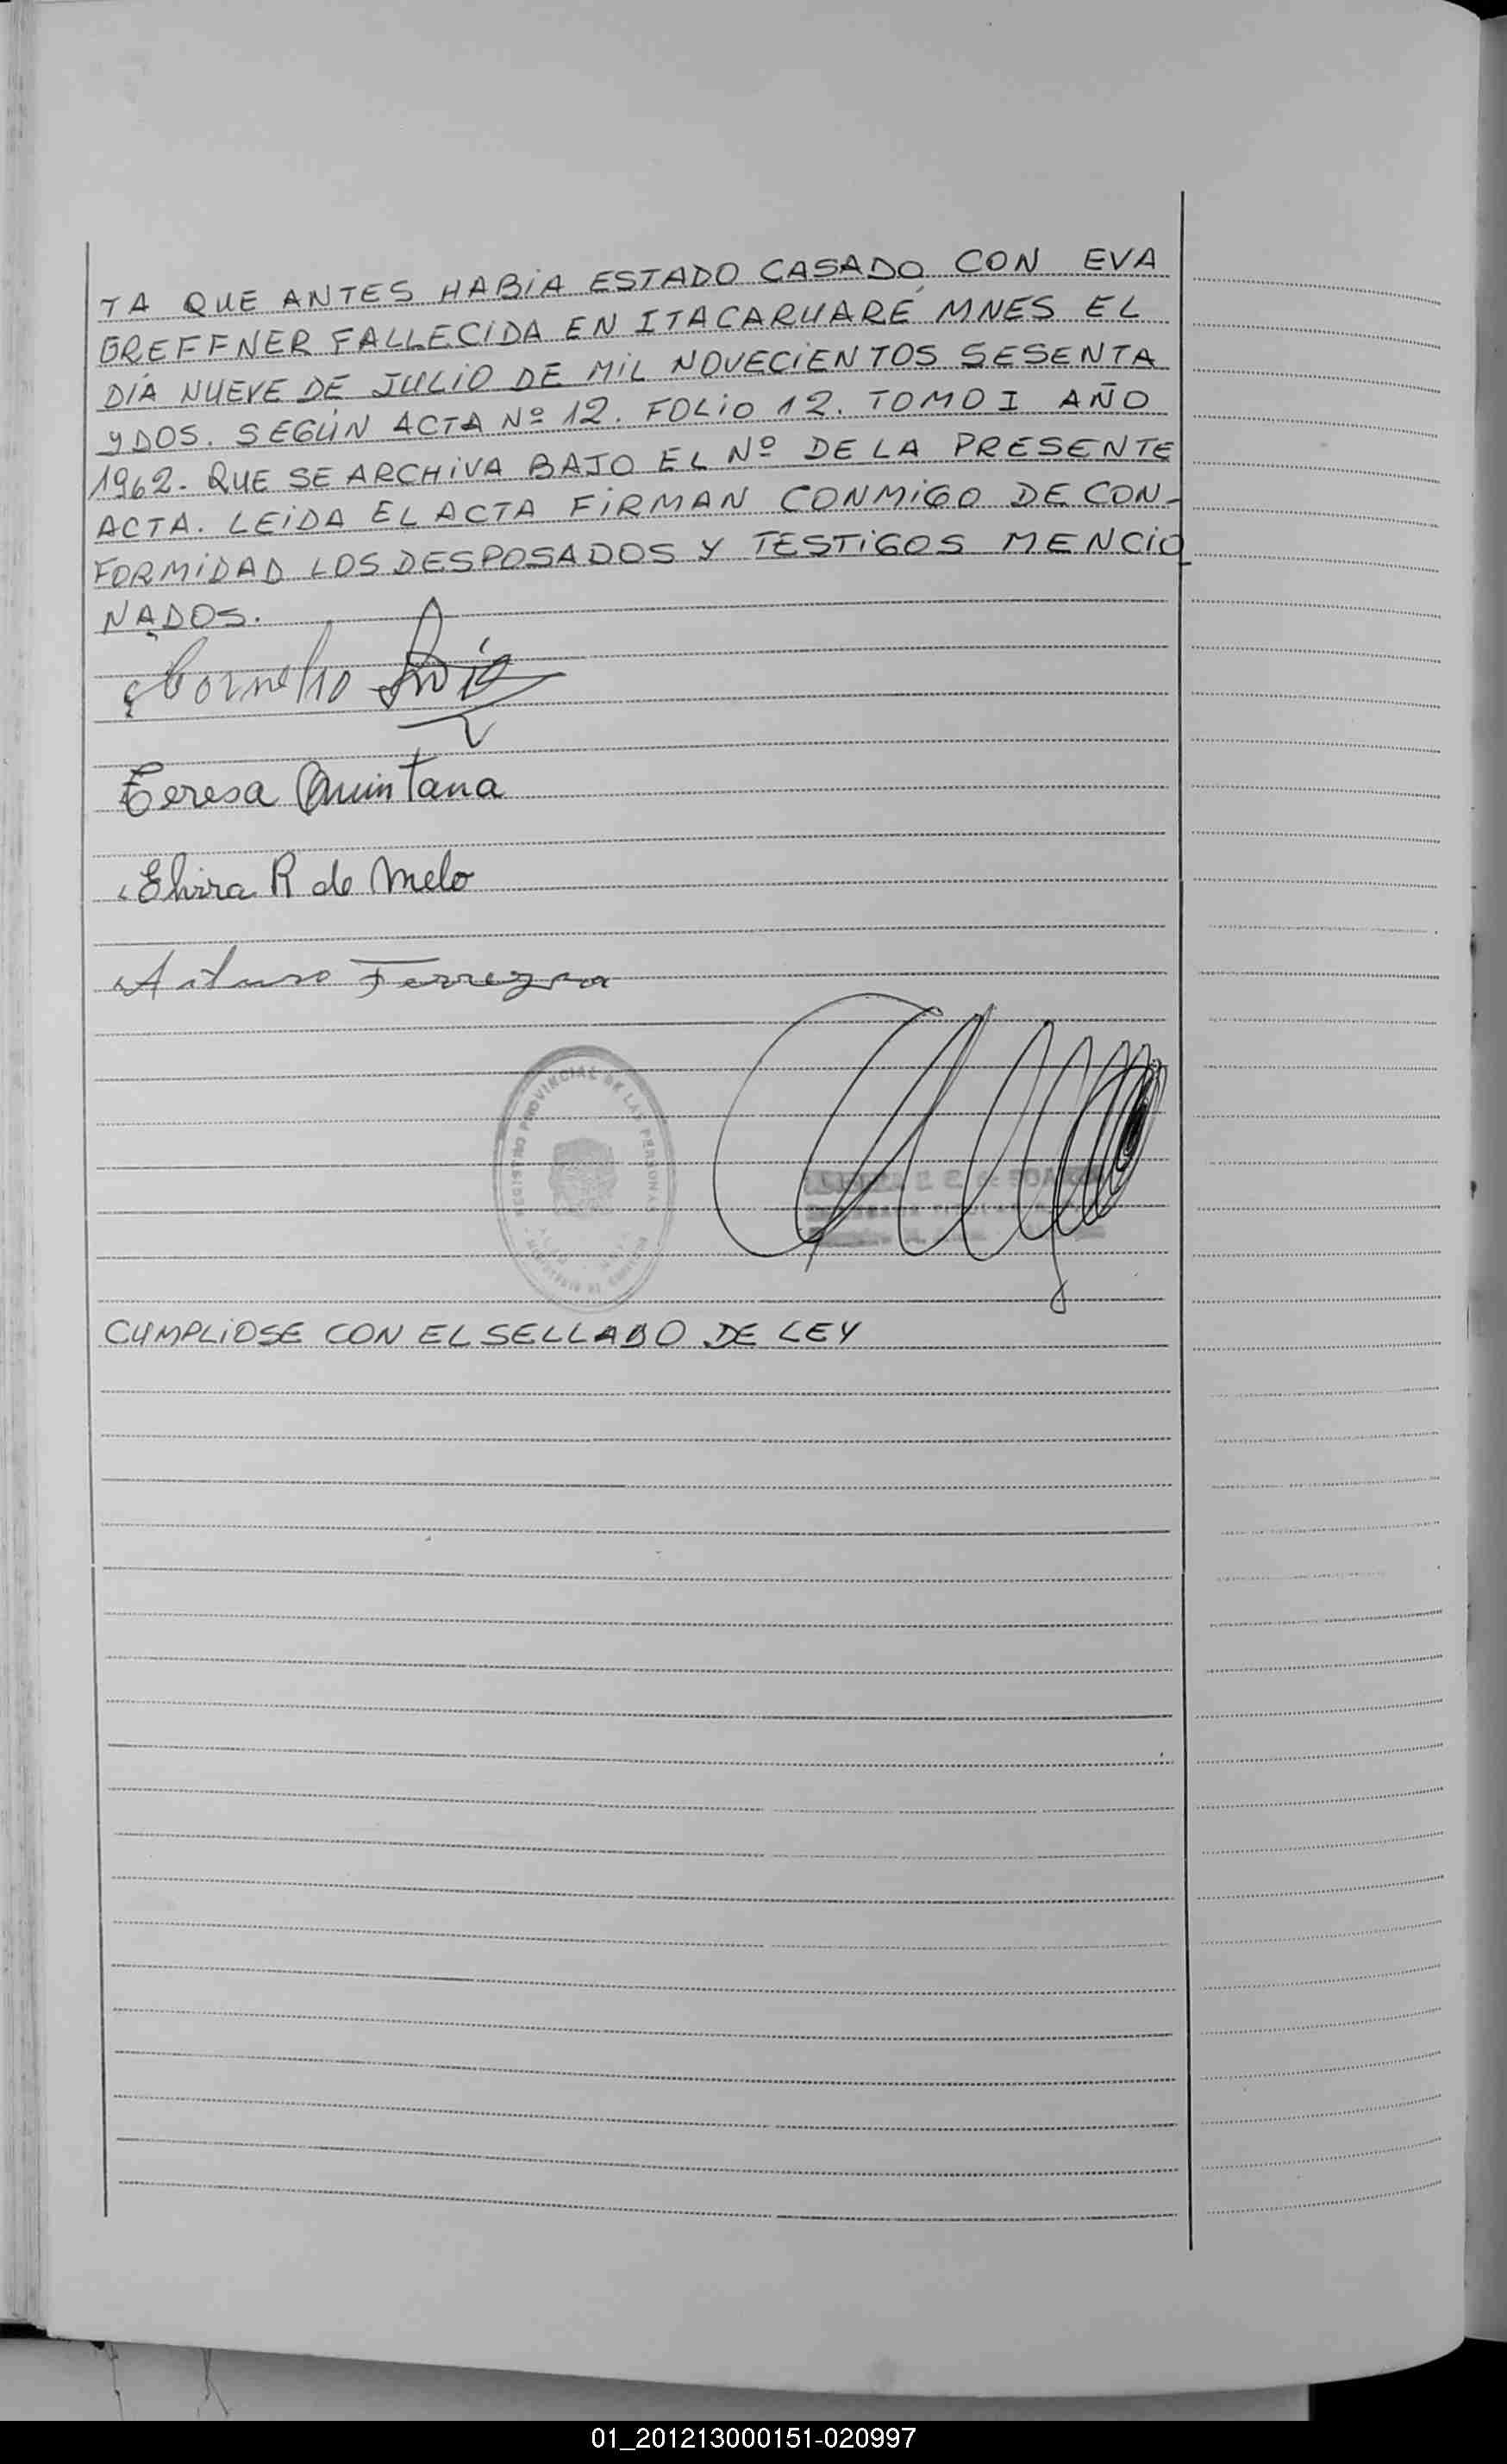 TA QUE ANTES HABIA ESTADO CASADO CON EVA
GREFFNER FALLECIDA EN ITACARUARÉ MNES EL
DÍA NUEVE DE JULIO DE MIL NOVECIENTOS SESENTA
Y DOS. SEGÚN ACTA Nº 12. FOLIO 12. TOMO I AÑO
1962. QUE SE ARCHIVA BAJO EL Nº DE LA PRESENTE
ACTA. LEIDA EL ACTA FIRMAN CONMIGO DE CON-
FORMIDAD LOS DESPOSADOS Y TESTIGOS MENCIO
NADOS.
Cornelio
Teresa Quintana
Elvira R de Melo
Arturo Ferreyra
REGISTRO PROVINCIAL DE LAS PERSONAS
CUMPLIOSE CON EL SELLADO DE LEY
01_201213000151-020997